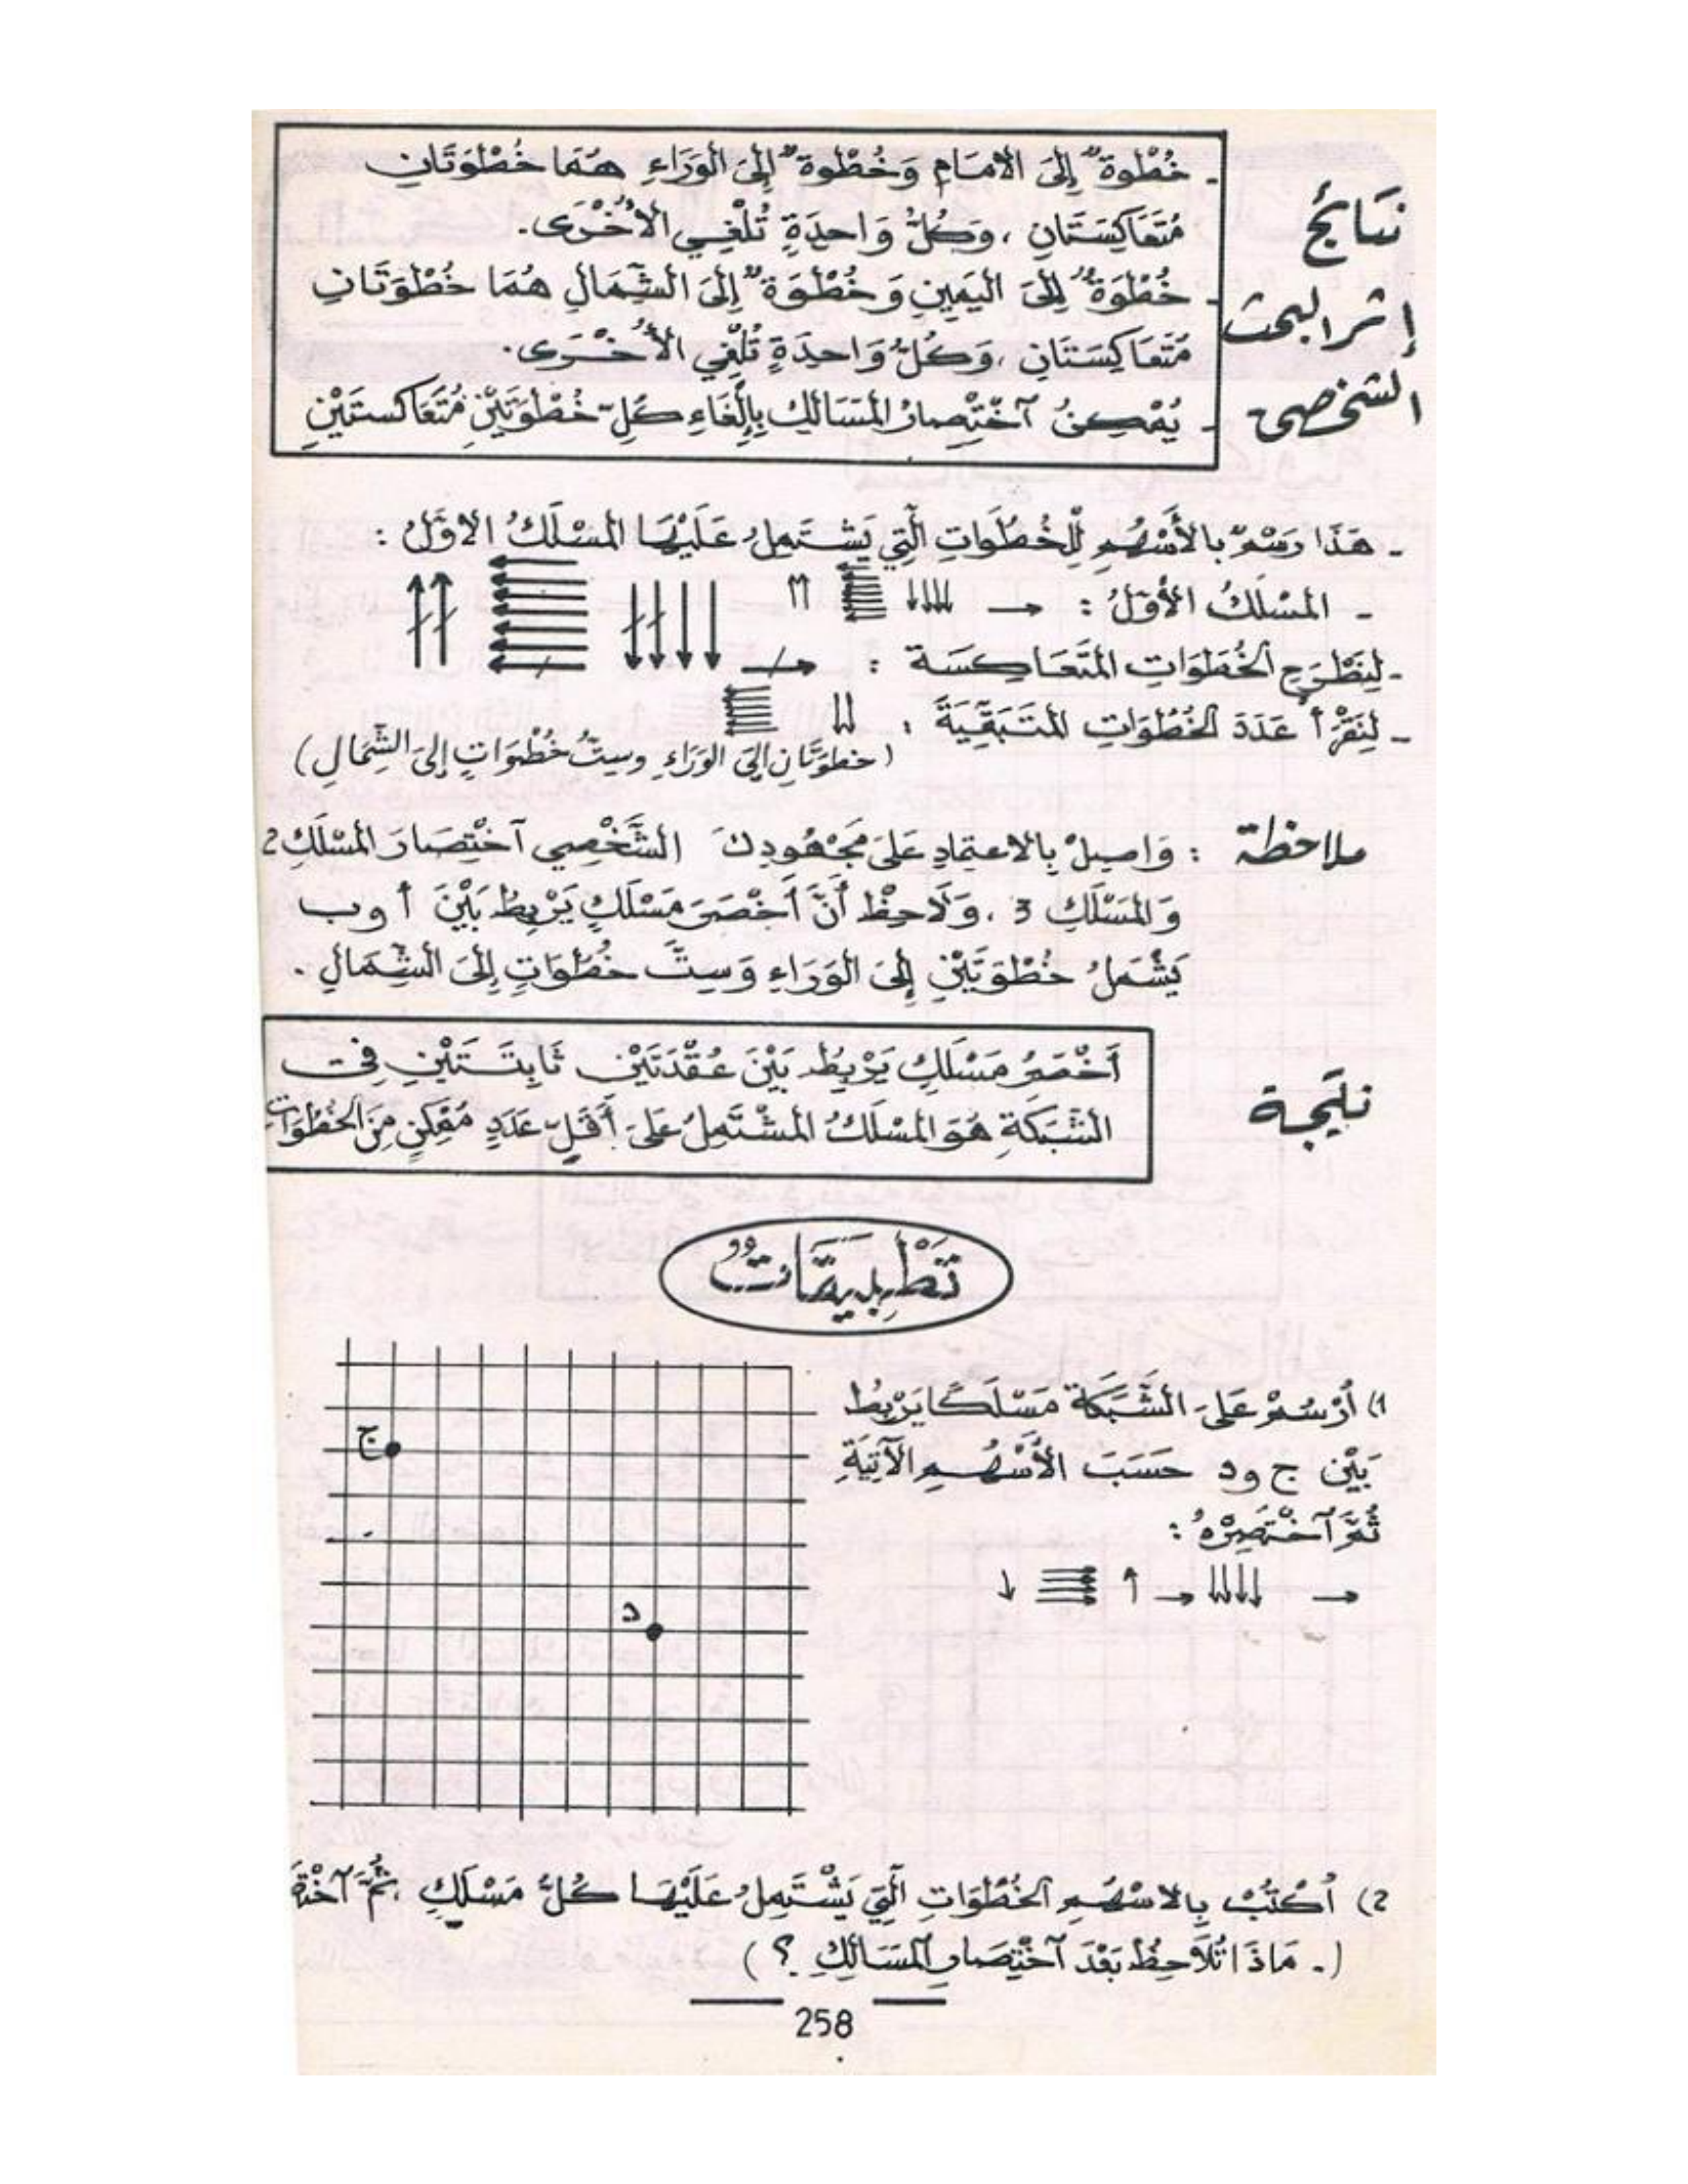 نتائج إثر البحث الشخصي
- خُطْوَةٌ إِلَى الأَمَامِ وَخُطْوَةٌ إِلَى الوَرَاءِ هُمَا خُطْوَتَانِ
مُتَعَاكِسَتَانِ ، وَكُلُّ وَاحِدَةٍ تُلْغِي الأُخْرَى .
- خُطْوَةٌ إِلَى اليَمِينِ وَخُطْوَةٌ إِلَى الشِّمَالِ هُمَا خُطْوَتَانِ
مُتَعَاكِسَتَانِ ، وَكُلُّ وَاحِدَةٍ تُلْغِي الأُخْرَى .
- يُمْكِنُ آخْتِصَارُ المَسَالِكِ بِإِلْغَاءِ كُلِّ خُطْوَتَيْنِ مُتَعَاكِسَتَيْنِ
- هَذَا رَسْمٌ بالأَسْهُمِ لِلْخُطُوَاتِ الَّتِي يَشْتَمِلُ عَلَيْهَا المَسْلَكُ الأَوَّلُ :
- المَسْلَكُ الأَوَّلُ : → ↓↓↓↓ ←←←←←←← ↑↑
- لِنَطْرَحِ الخُطُوَاتِ المُتَعَاكِسَة :
- لِنَقْرَأْ عَدَدَ الخُطُوَاتِ المُتَبَقِّيَةَ : ↓↓ ←←←←←←
(خطوَتَانِ إِلَى الوَرَاءِ وستُّ خُطُوَاتٍ إِلَى الشِّمَالِ)
ملاحظة : وَاصِلْ بِالاعتِمَادِ عَلَى مَجْهُودِكَ الشَّخْصِي آخْتِصَارَ المَسْلَكِ 2
وَالمَسْلَكِ 3 ، وَلَاحِظْ أَنَّ أَخْصَرَ مَسْلَكٍ يَرْبِطُ بَيْنَ أ و ب
يَشْمَلُ خُطْوَتَيْنِ إِلَى الوَرَاءِ وَسِتَّ خُطُوَاتٍ إِلَى الشِّمَالِ .
نتيجة
أَخْصَرُ مَسْلَكٍ يَرْبِطُ بَيْنَ عُقْدَتَيْنِ ثَابِتَتَيْنِ فِي
الشَّبَكَةِ هُوَ المَسْلَكُ المُشْتَمِلُ عَلَى أَقَلِّ عَدَدٍ مُمْكِنٍ مِنَ الخُطُوَاتِ
تَطْبِيقَاتٌ
1) أُرْسُمْ عَلَى الشَّبَكَةِ مَسْلَكًا يَرْبِطُ
بَيْنَ ج و د حَسَبَ الأَسْهُمِ الآتِيَةِ
ثُمَّ آخْتَصِرْهُ :
→ ↓↓↓↓ → ↑ →→→→ ↓
ج
د
2) أُكْتُبْ بِالاسْهُمِ الخُطُوَاتِ الَّتِي يَشْتَمِلُ عَلَيْهَا كُلُّ مَسْلَكٍ ، ثُمَّ
(- مَاذَا تُلَاحِظُ بَعْدَ آخْتِصَارِ المَسَالِكِ ؟)
258